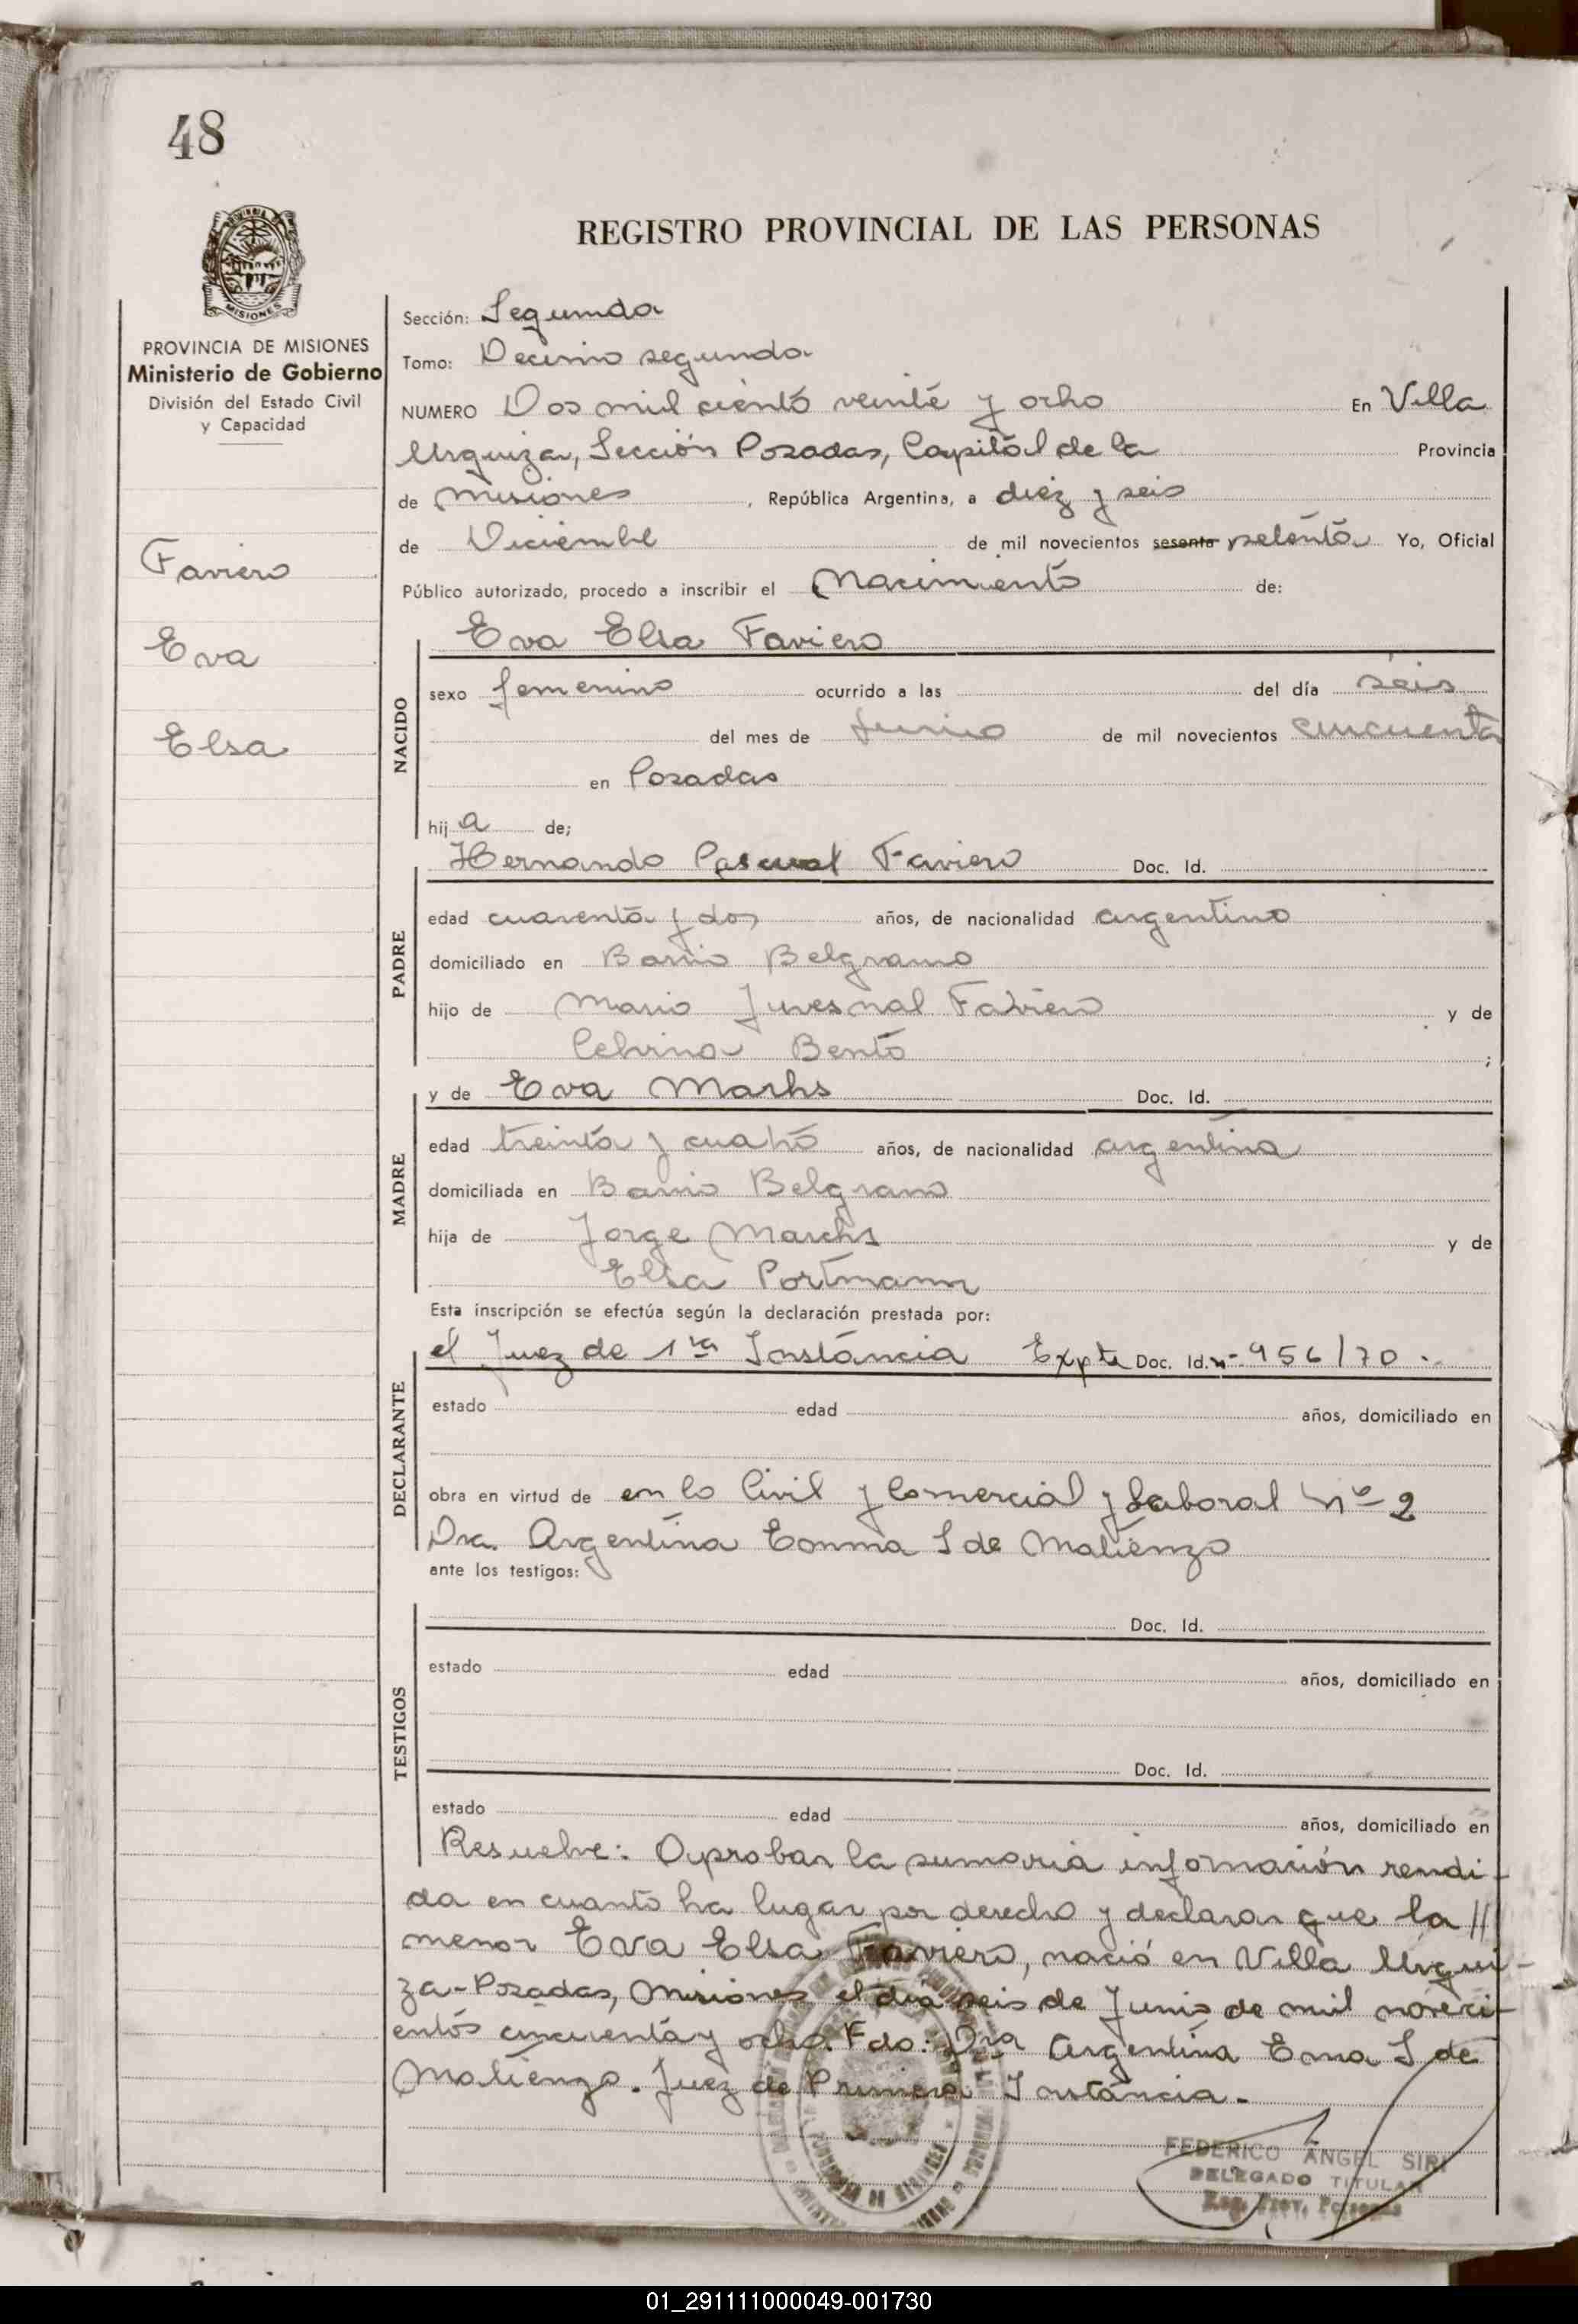 48
REGISTRO PROVINCIAL DE LAS PERSONAS
MISIONES
PROVINCIA DE MISIONES
Ministerio de Gobierno
División del Estado Civil
y Capacidad
Faviero
Eva
Elsa
Sección: Segunda
Tomo: Decimo segundo
NUMERO Dos mil ciento veinte y ocho En Villa
Urquiza, Sección Posadas, Capital de la Provincia
de Misiones, República Argentina, a diez y seis
de Diciembre de mil novecientos sesenta setenta Yo, Oficial
Público autorizado, procedo a inscribir el Nacimiento de:
Eva Elsa Faviero
NACIDO
sexo femenino ocurrido a las del día seis
del mes de Junio de mil novecientos cincuenta
en Posadas
hij a de;
Hernando Pascual Faviero Doc. Id.
PADRE
edad cuarenta y dos años, de nacionalidad argentino
domiciliado en Barrio Belgrano
hijo de Mario Juvesnal Faviero y de
Bento ;
y de Eva Marhs Doc. Id.
MADRE
edad treinta y cuatro años, de nacionalidad argentina
domiciliada en Barrio Belgrano
hija de Jorge Marchs y de
Elsa Portmann
Esta inscripción se efectúa según la declaración prestada por:
el Juez de 1ra Instancia Expte Doc. Id. nº 956/70.
DECLARANTE
estado edad años, domiciliado en
obra en virtud de en lo Civil y Comercial y Laboral Nº 2
Dra. Argentina Emma S de Matienzo
ante los testigos:
Doc. Id.
TESTIGOS
estado edad años, domiciliado en
Doc. Id.
estado edad años, domiciliado en
Resuelve: Aprobar la sumaria información rendi-
da en cuanto ha lugar por derecho y declarar que la //
menor Eva Elsa Faviero, nació en Villa Urqui-
za-Posadas, Misiones el día seis de Junio de mil noveci-
entos cincuenta y ocho. Fdo: Dra Argentina Ema S de
Matienzo. Juez de Primera Instancia.-
FEDERICO ANGEL SIRI
DELEGADO TITULAR
Reg. Prov. Personas
01_291111000049-001730